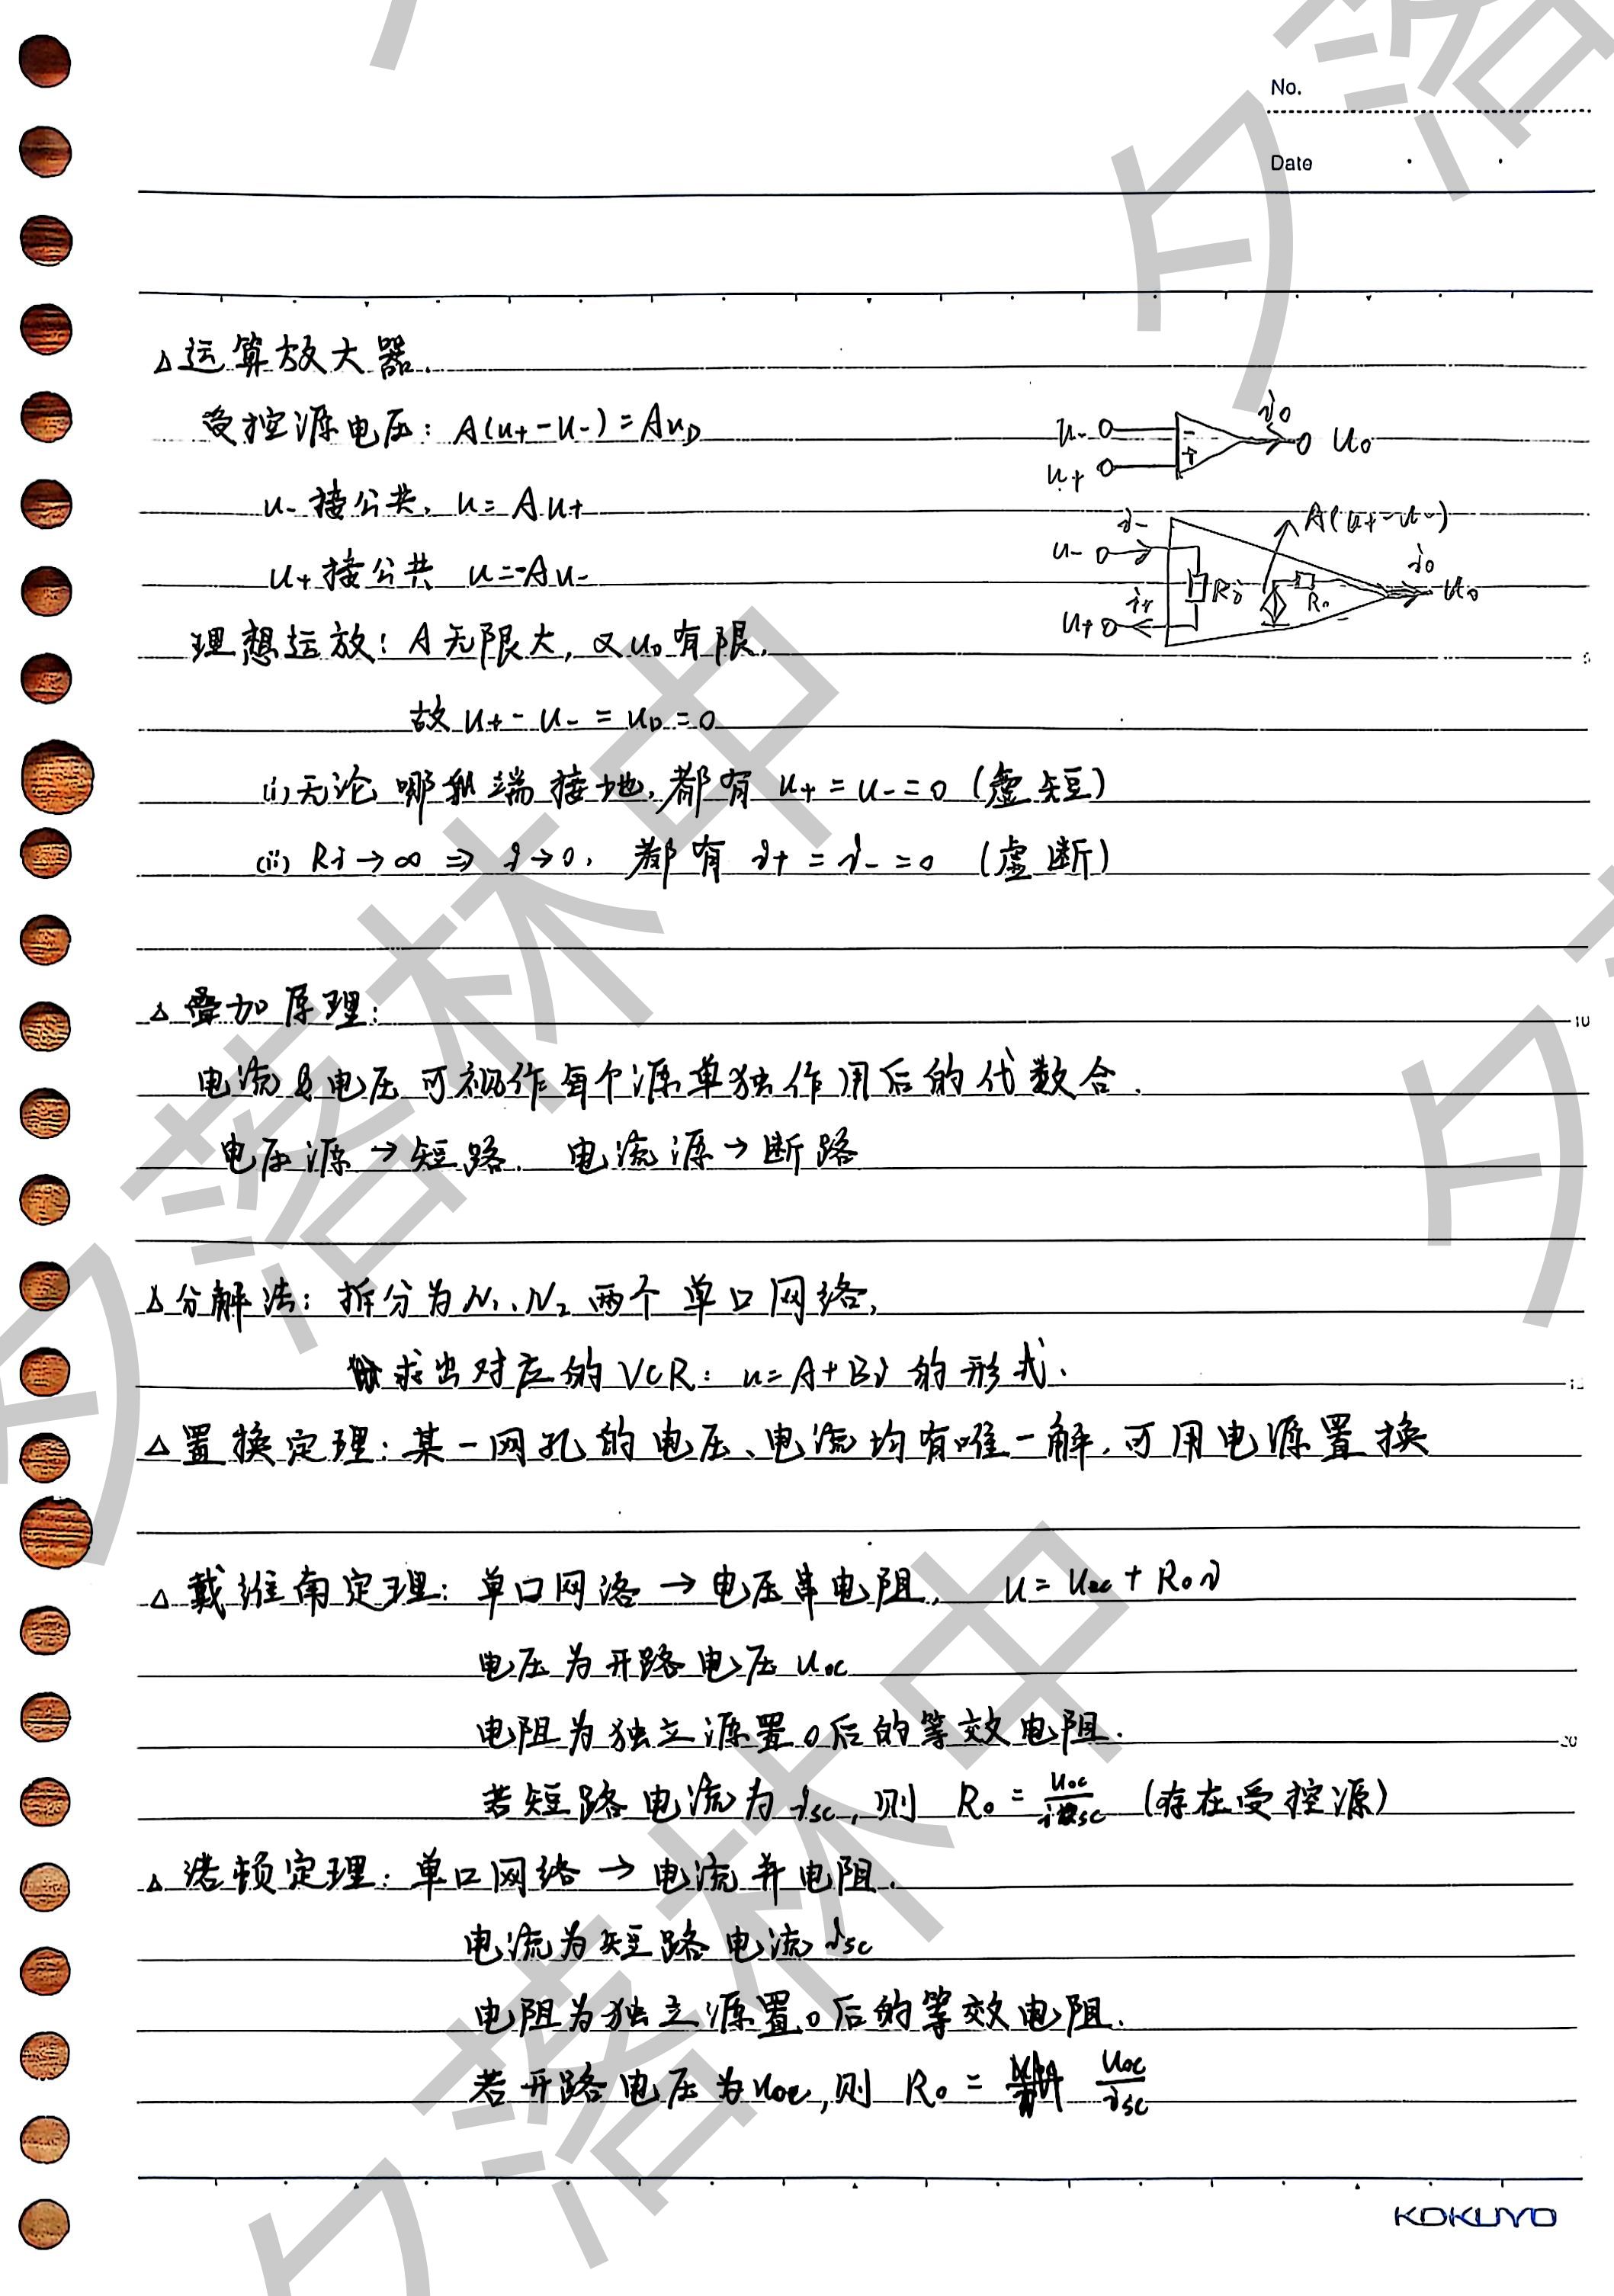 No.
Date
△运算放大器.
受控源电压: A(u+-u-)=AuD
u-接公共, u=Au+
u+接公共 u=-Au-
理想运放: A无限大, 又u0有限,
故u+-u-=uD=0
(i)无论哪个端接地,都有 u+=u-=0 (虚短)
(ii) Ri→∞ ⇒ i→0, 都有 i+=i-=0 (虚断)
u- i0 u0
u+
i- A(u+-u-)
u- Ri R0 i0 u0
i+
u+
△叠加原理:
电流&电压可视作每个源单独作用后的代数合.
电压源→短路. 电流源→断路
10
△分解法: 拆分为N1、N2两个单口网络,
求出对应的VCR: u=A+Bi的形式.
15
△置换定理: 某一网孔的电压、电流均有唯一解,可用电源置换
△戴维南定理: 单口网洛→电压串电阻, u=uoc+R0i
电压为开路电压uoc
电阻为独立源置0后的等效电阻.
20
若短路电流为isc,则 R0=uoc/isc (存在受控源)
△诺顿定理: 单口网络→电流并电阻.
电流为短路电流isc
电阻为独立源置0后的等效电阻.
若开路电压为uoc,则 R0= uoc/isc
KOKUYO
夕落林中
夕落林中